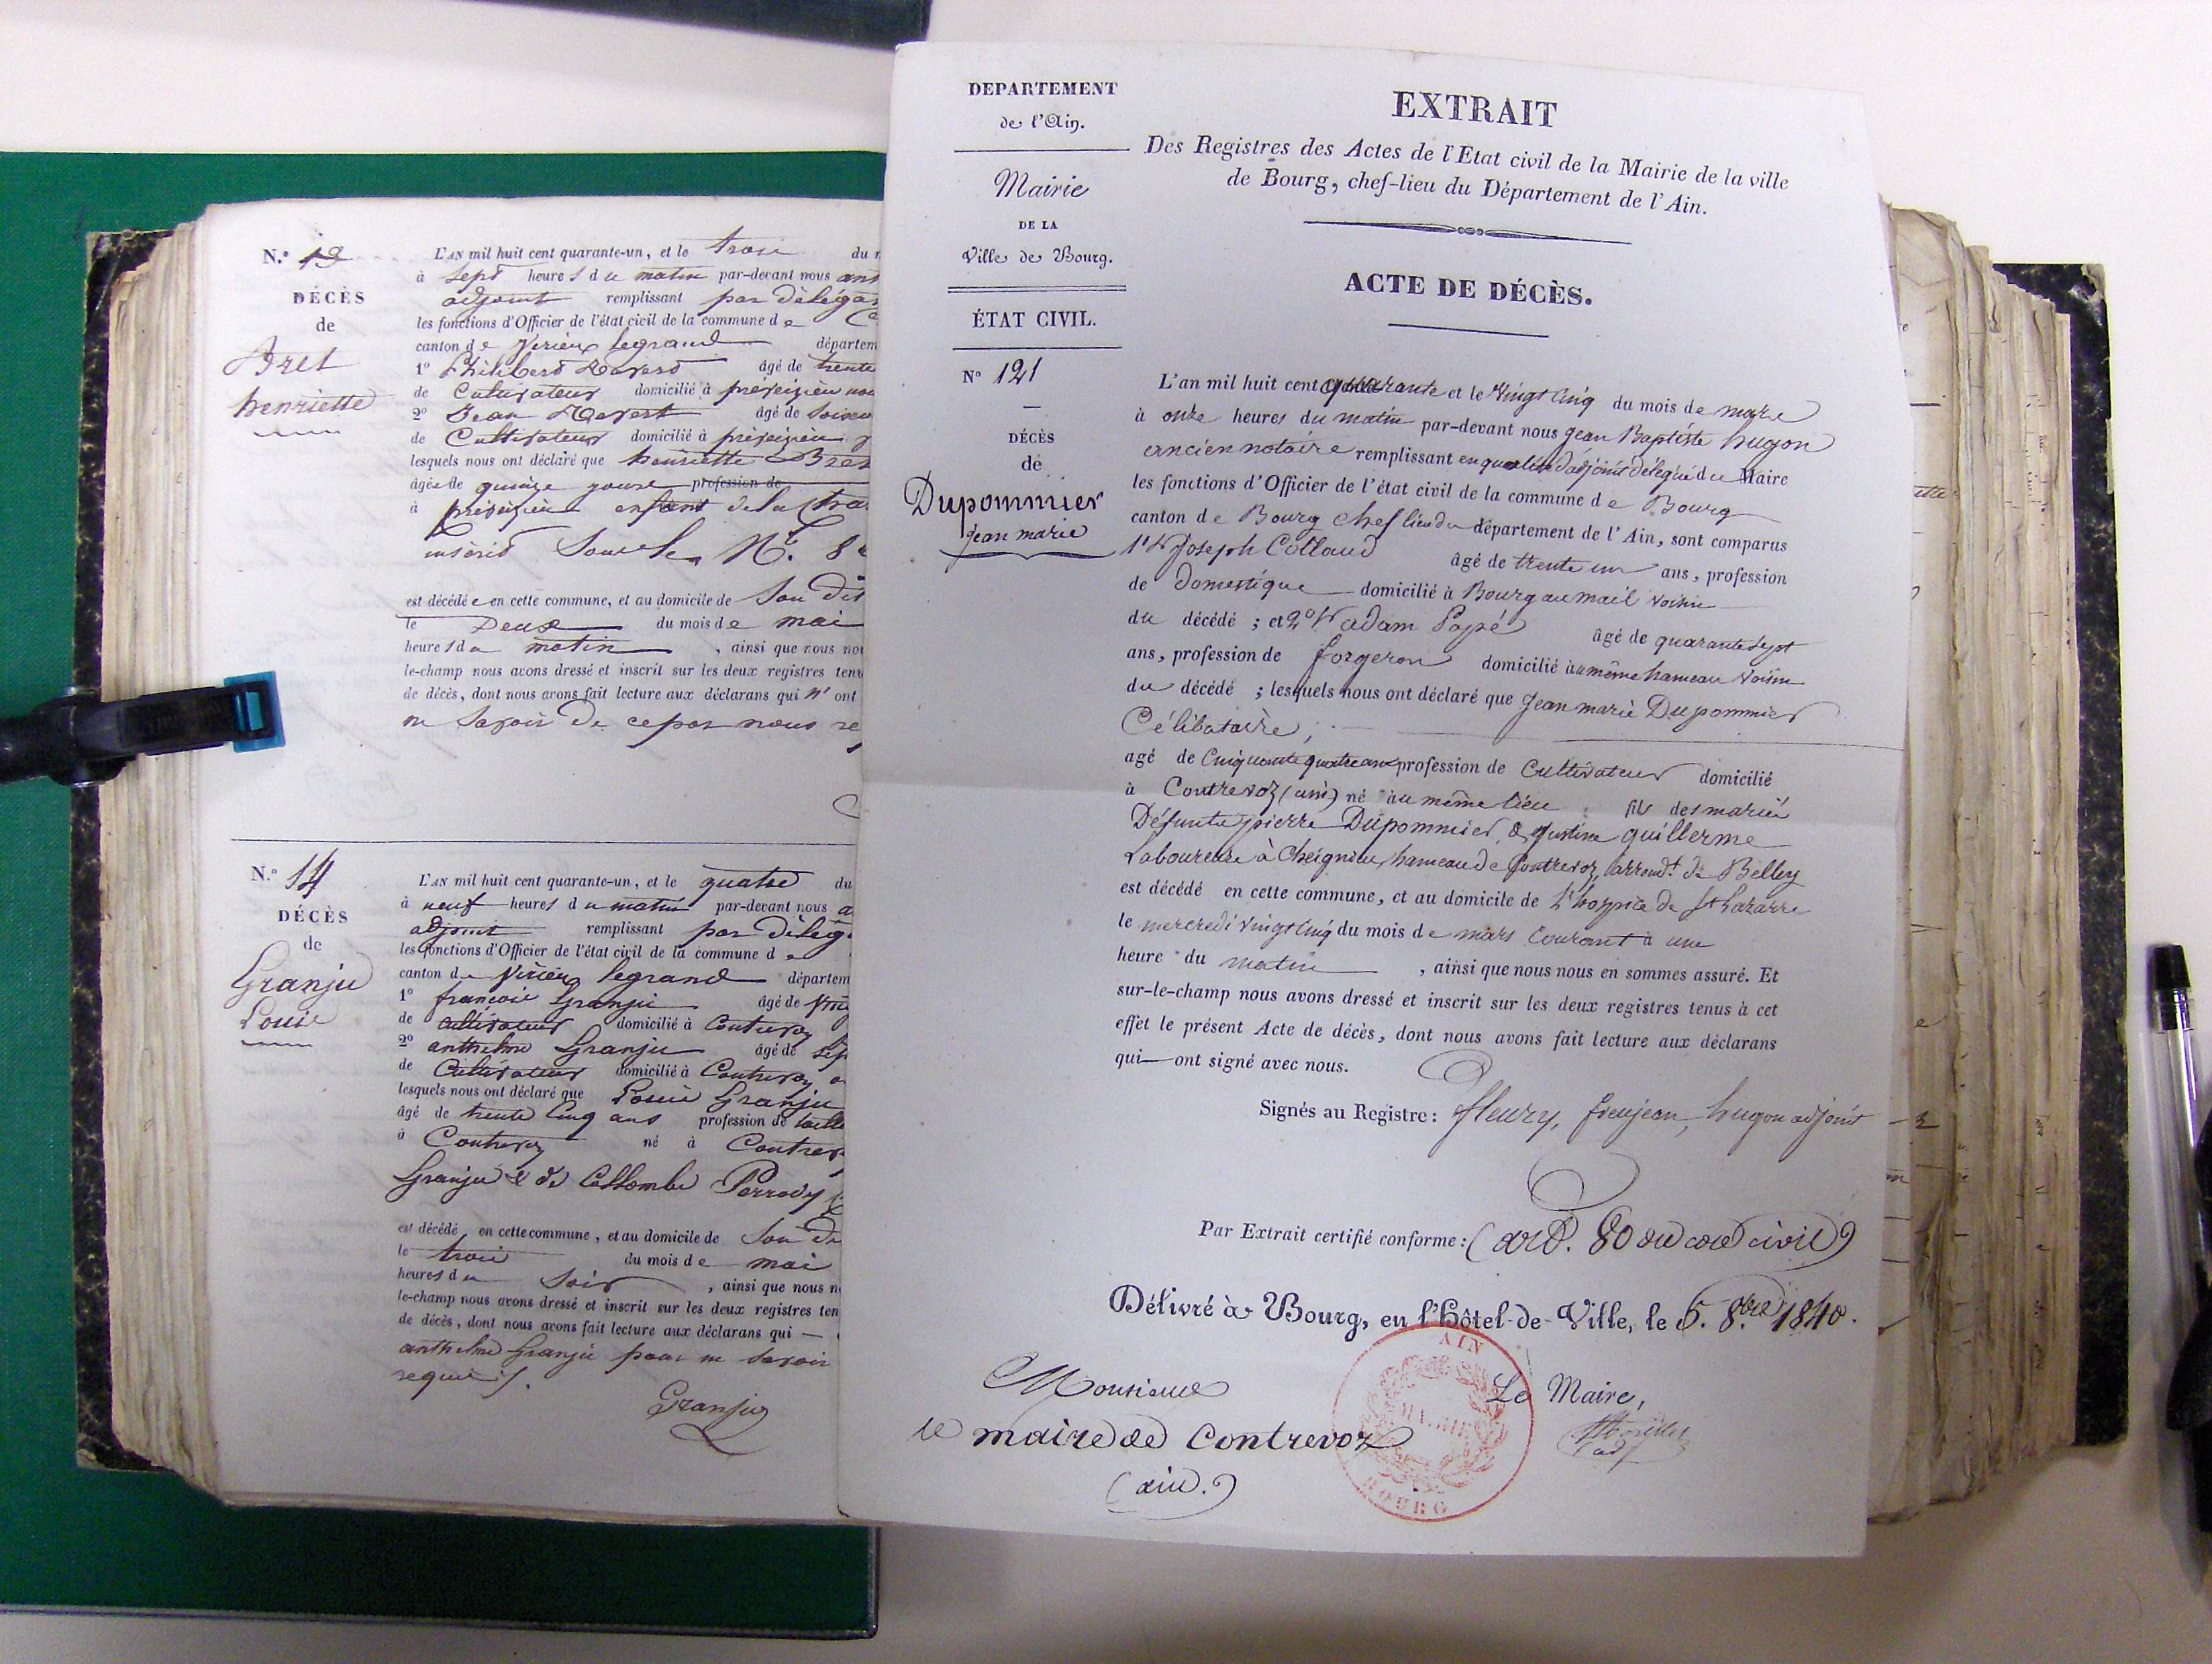 N.° 13
DÉCÈS
de
Bret
henriette
L'AN mil huit cent quarante-un, et le trois du
à sept heures du matin par-devant nous
adjoint remplissant par
les fonctions d'Officier de l'état civil de la commune de
canton de Virieux legrand départem
1° Philibert âgé de trente
de Cultivateur domicilié à
2° Jean âgé de
de Cultivateur domicilié à
lesquels nous ont déclaré que henriette Bret
âgée de quinze jours profession de
à enfant de la
inscrit sous le N.°
est décédée en cette commune, et au domicile de Son dit
le Deux du mois de mai
heures du matin , ainsi que nous
le-champ nous avons dressé et inscrit sur les deux registres
de décès, dont nous avons fait lecture aux déclarans qui n'ont
ne savoir de ce par nous
N.° 14
DÉCÈS
de
Granju
Louis
L'AN mil huit cent quarante-un, et le quatre du
à neuf heures du matin par-devant nous
adjoint remplissant par
les fonctions d'Officier de l'état civil de la commune de
canton de Virieux legrand départem
1° françois Granju âgé de
de cultivateur domicilié à Contrevoz
2° anthelme Granju âgé de
de Cultivateur domicilié à Contrevoz
lesquels nous ont déclaré que Louis Granju
âgé de trente Cinq ans profession de
à Contrevoz né à
Granju & de Collombe
est décédé en cette commune, et au domicile de Son
le trois du mois de mai
heures du Soir , ainsi que nous
le-champ nous avons dressé et inscrit sur les deux registres
de décès, dont nous avons fait lecture aux déclarans qui —
anthelme Granju pour ne savoir
requis.
Granju
DEPARTEMENT
de l'Ain.
Mairie
DE LA
Ville de Bourg.
ÉTAT CIVIL.
N° 121
DÉCÈS
de
Dupommier
jean marie
EXTRAIT
Des Registres des Actes de l'Etat civil de la Mairie de la ville
de Bourg, chef-lieu du Département de l'Ain.
ACTE DE DÉCÈS.
L'an mil huit cent quarante et le Vingt Cinq du mois de mars
à onze heures du matin par-devant nous Jean Baptiste hugon
ancien notaire remplissant en qualité d'adjoint délégué du Maire
les fonctions d'Officier de l'état civil de la commune de Bourg
canton de Bourg chef lieu du département de l'Ain, sont comparus
Joseph Collaud âgé de trente un ans, profession
de domestique domicilié à Bourg au mail voisin
du décédé ; et 2° adam Papé âgé de quarante sept
ans, profession de forgeron domicilié au même hameau voisin
du décédé ; lesquels nous ont déclaré que Jean marie Dupommier
Célibataire,
agé de Cinquante quatre ans profession de Cultivateur domicilié
à Contrevoz (ain) né au même lieu fils des mariés
Défunts pierre Dupommier & justine guillerme
Laboureurs à Cheignieu, hameau de Contrevoz, arrondt. de Belley
est décédé en cette commune, et au domicile de l'hospice de St Lazarre
le mercredi vingt Cinq du mois de mars courant à une
heure du matin , ainsi que nous nous en sommes assuré. Et
sur-le-champ nous avons dressé et inscrit sur les deux registres tenus à cet
effet le présent Acte de décès, dont nous avons fait lecture aux déclarans
qui — ont signé avec nous.
Signés au Registre : fleury, frenjean, hugon adjoint
Par Extrait certifié conforme : (art. 80 du code civil)
Délivré à Bourg, en l'Hôtel-de-Ville, le 5. 8.bre 1840.
Monsieur
le maire de Contrevoz
(ain.)
AIN
MAIRIE
BOURG
Le Maire,